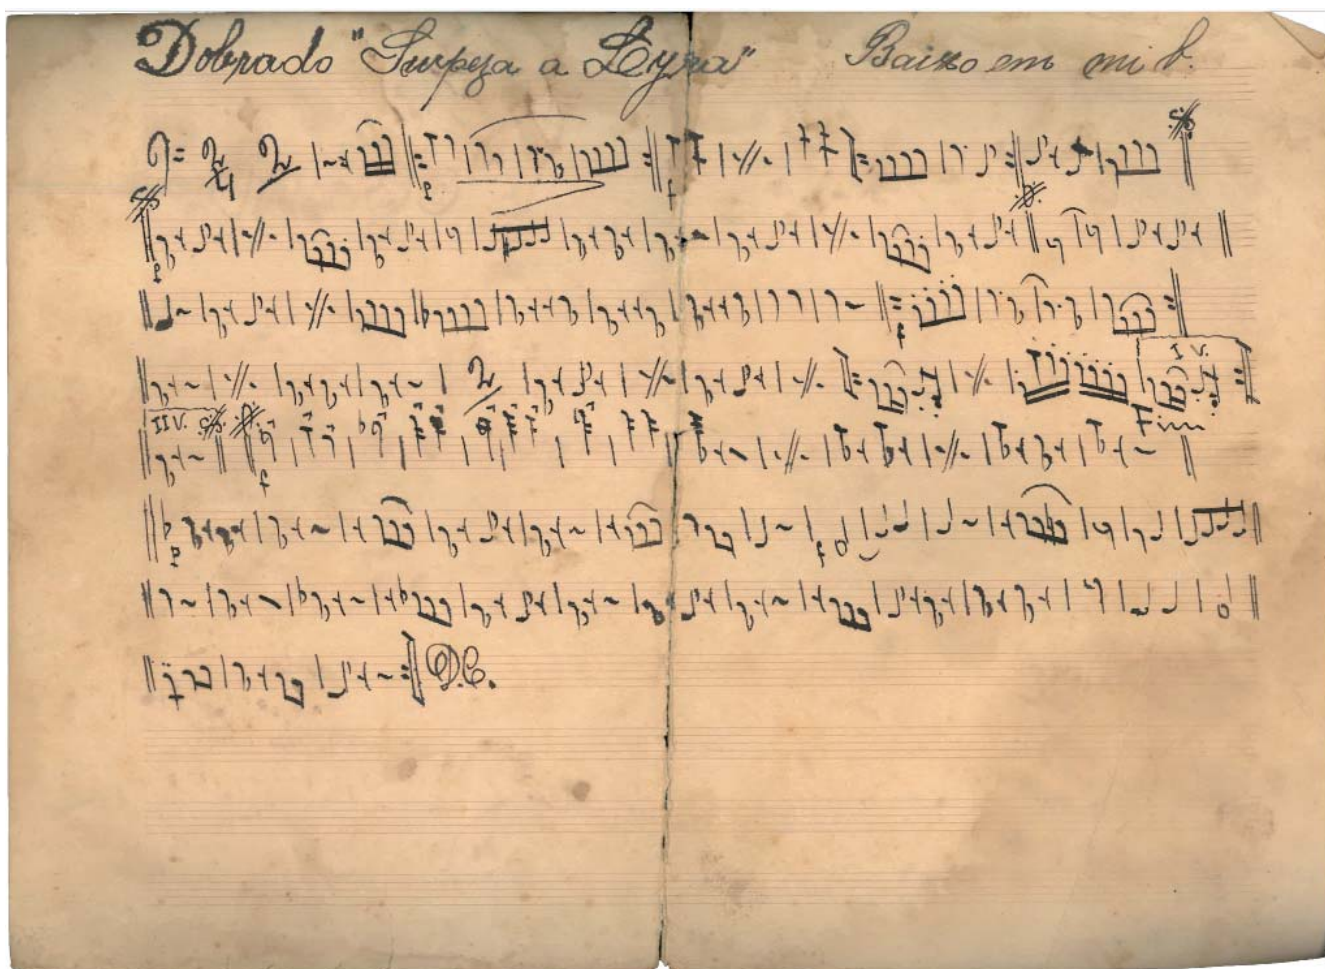 Dobrado "Surpeza a Lyra" Baixo em mi b.
I V.
II V.
D.C.